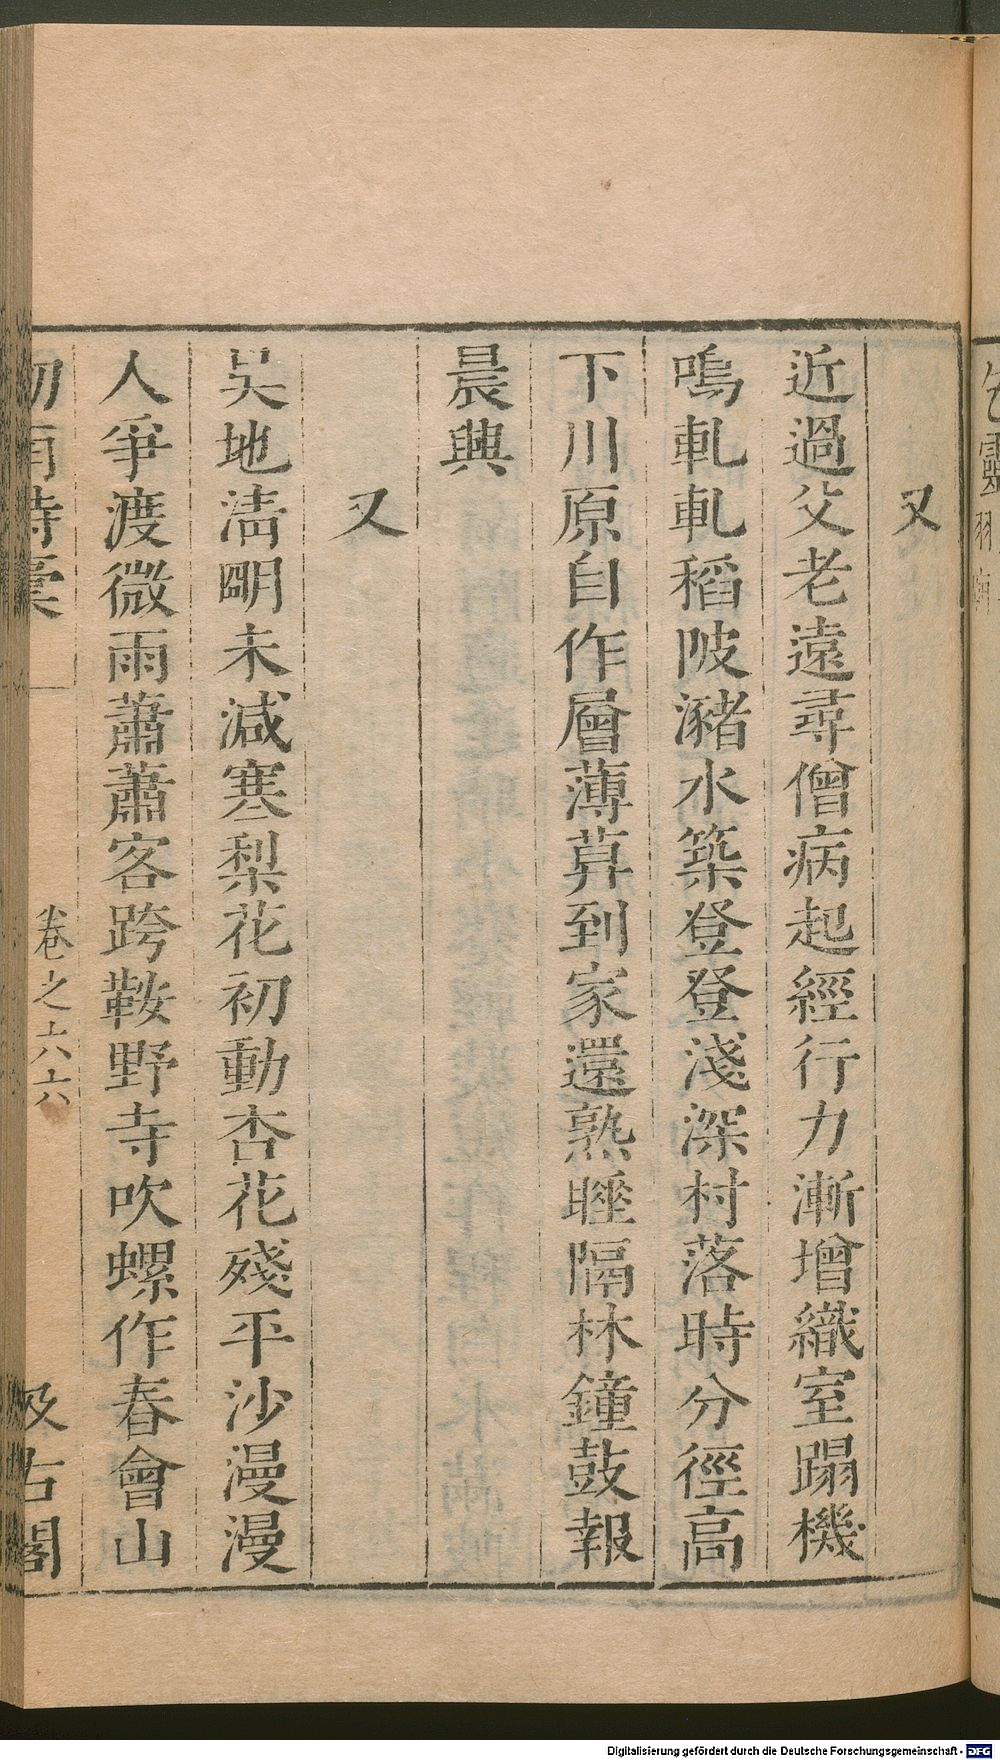 又
近過父老遠尋僧病起經行力漸增織室蹋機
鳴軋軋稻陂瀦水築登登淺深村落時分徑高
下川原自作層薄莫到家還熟睡隔林鐘鼓報
晨興
又
吴地淸明未減寒梨花初動杏花殘平沙漫漫
人爭渡微雨蕭蕭客跨鞍野寺吹螺作春會山
卷之六 六
及古閣
Digitalisierung gefördert durch die Deutsche Forschungsgemeinschaft - DFG